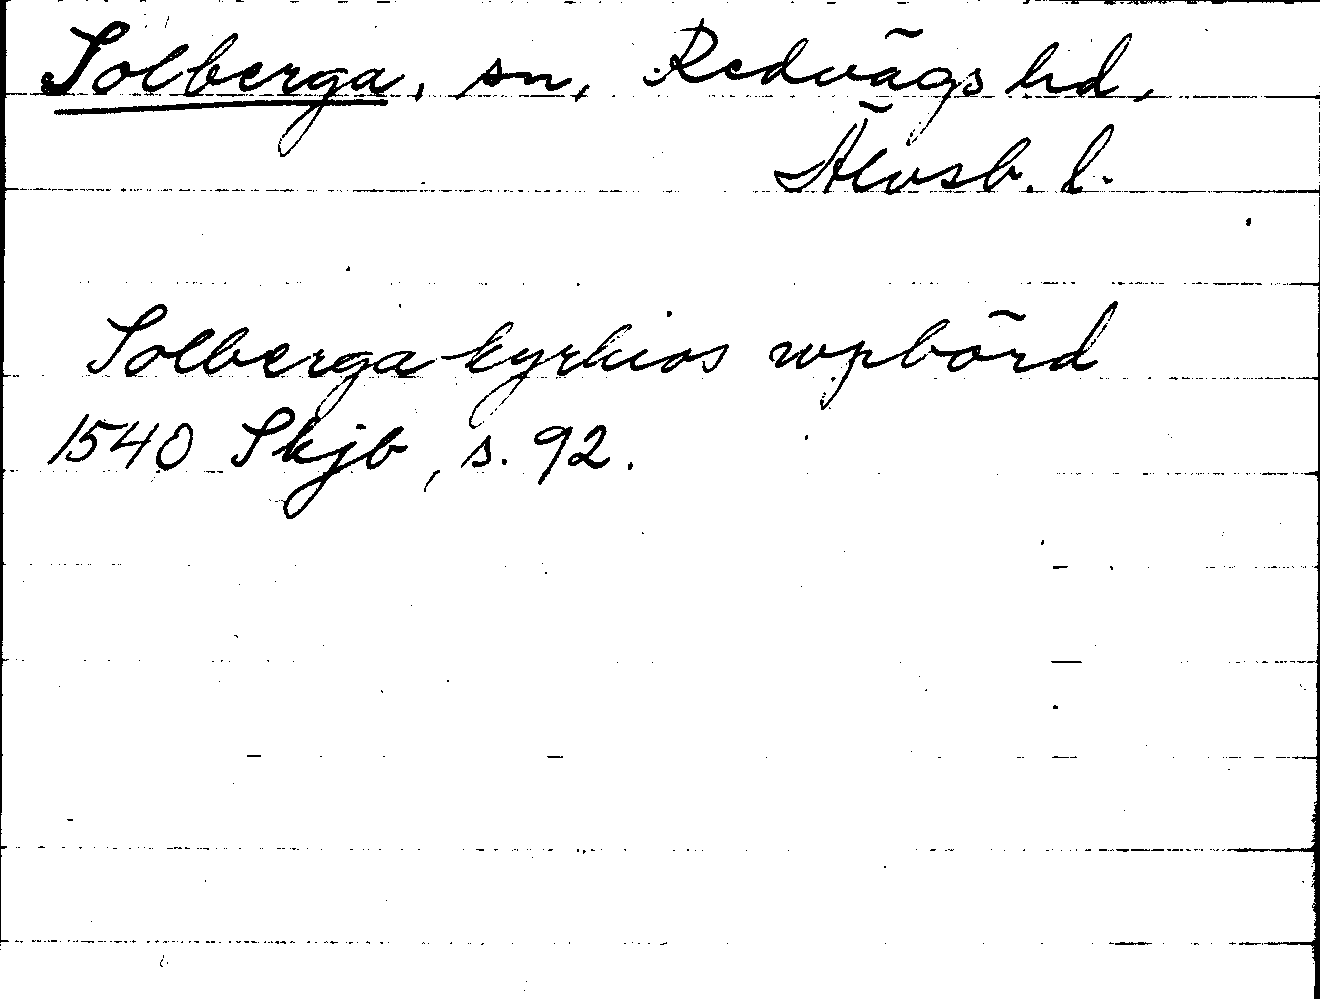 Solberga, sn, Redvägs hd,
Älvsb. l.
Solberga kyrkios wpbörd
1540 Skjb, s. 92.